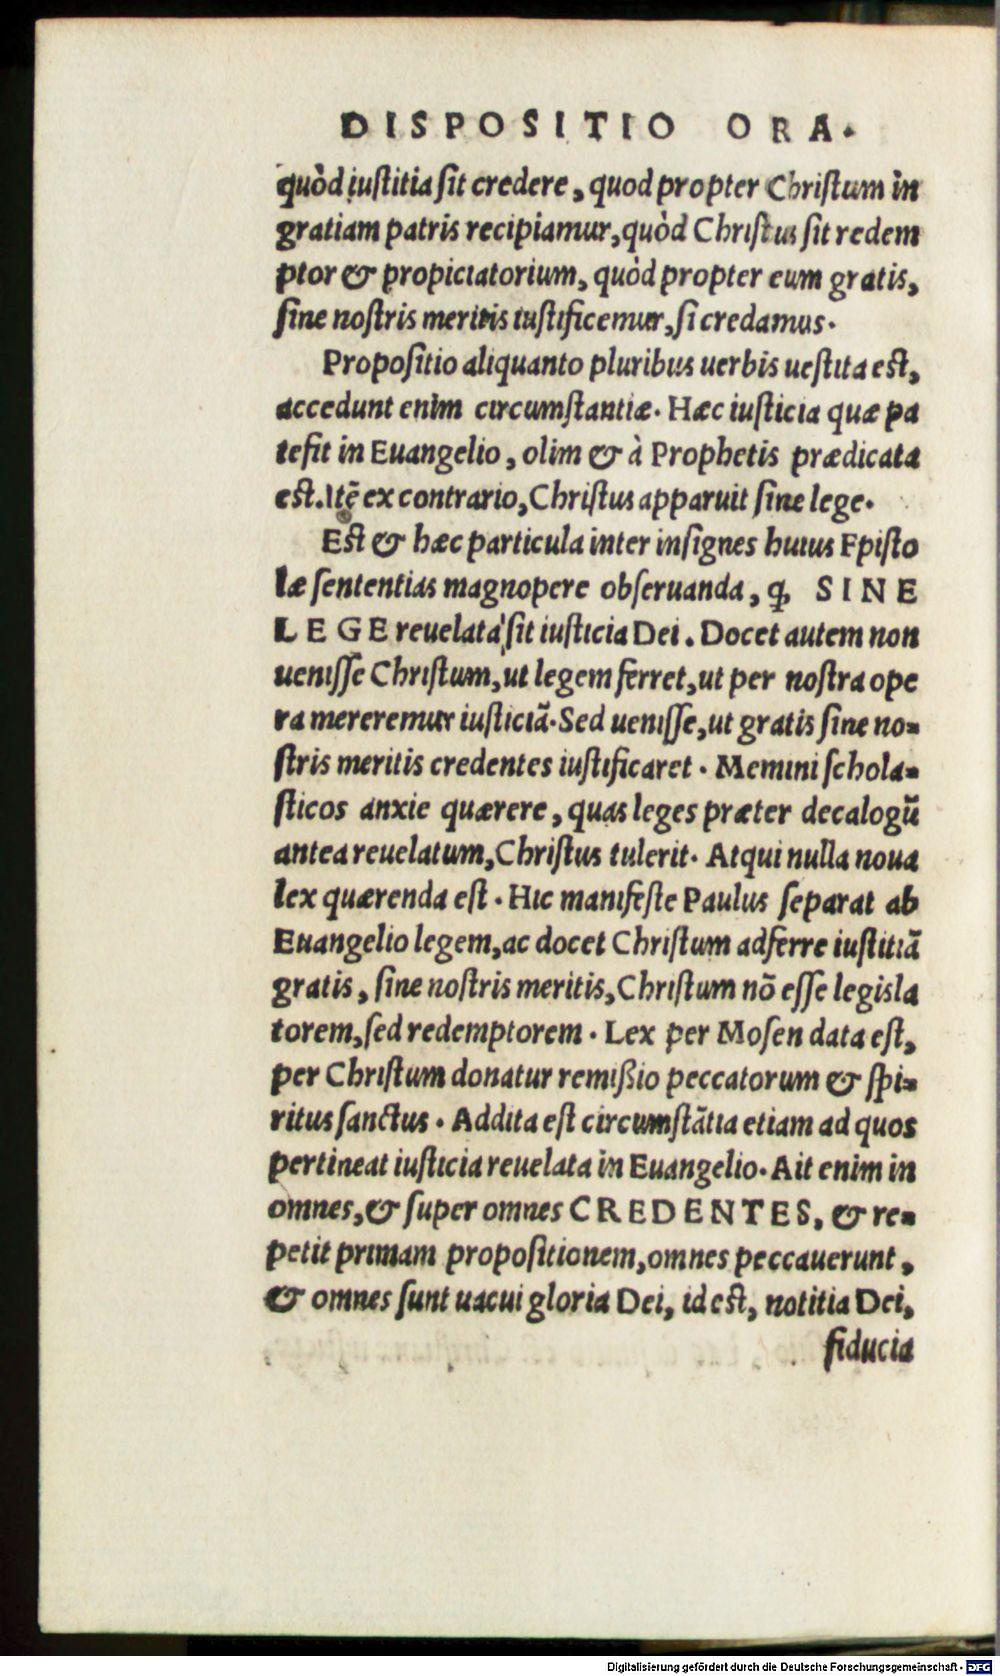 DISPOSITIO ORA.
quòd iustitia sit credere, quod propter Christum in
gratiam patris recipiamur, quòd Christus sit redem
ptor & propiciatorium, quòd propter eum gratis,
sine nostris meritis iustificemur, si credamus.
Propositio aliquanto pluribus uerbis uestita est,
accedunt enim circumstantiæ. Hæc iusticia quæ pa
tefit in Euangelio, olim & à Prophetis prædicata
est. Itẽ ex contrario, Christus apparuit sine lege.
Est & hæc particula inter insignes huius Episto
læ sententias magnopere obseruanda, ꝙ SINE
LEGE reuelata sit iusticia Dei. Docet autem non
uenisse Christum, ut legem ferret, ut per nostra ope
ra mereremur iusticiã. Sed uenisse, ut gratis sine no=
stris meritis credentes iustificaret. Memini schola=
sticos anxie quærere, quas leges præter decalogũ
antea reuelatum, Christus tulerit. Atqui nulla noua
lex quærenda est. Hic manifeste Paulus separat ab
Euangelio legem, ac docet Christum adferre iustitiã
gratis, sine nostris meritis, Christum nõ esse legisla
torem, sed redemptorem. Lex per Mosen data est,
per Christum donatur remißio peccatorum & spi=
ritus sanctus. Addita est circumstãtia etiam ad quos
pertineat iusticia reuelata in Euangelio. Ait enim in
omnes, & super omnes CREDENTES, & re=
petit primam propositionem, omnes peccauerunt,
& omnes sunt uacui gloria Dei, id est, notitia Dei,
fiducia
Digitalisierung gefördert durch die Deutsche Forschungsgemeinschaft - DFG